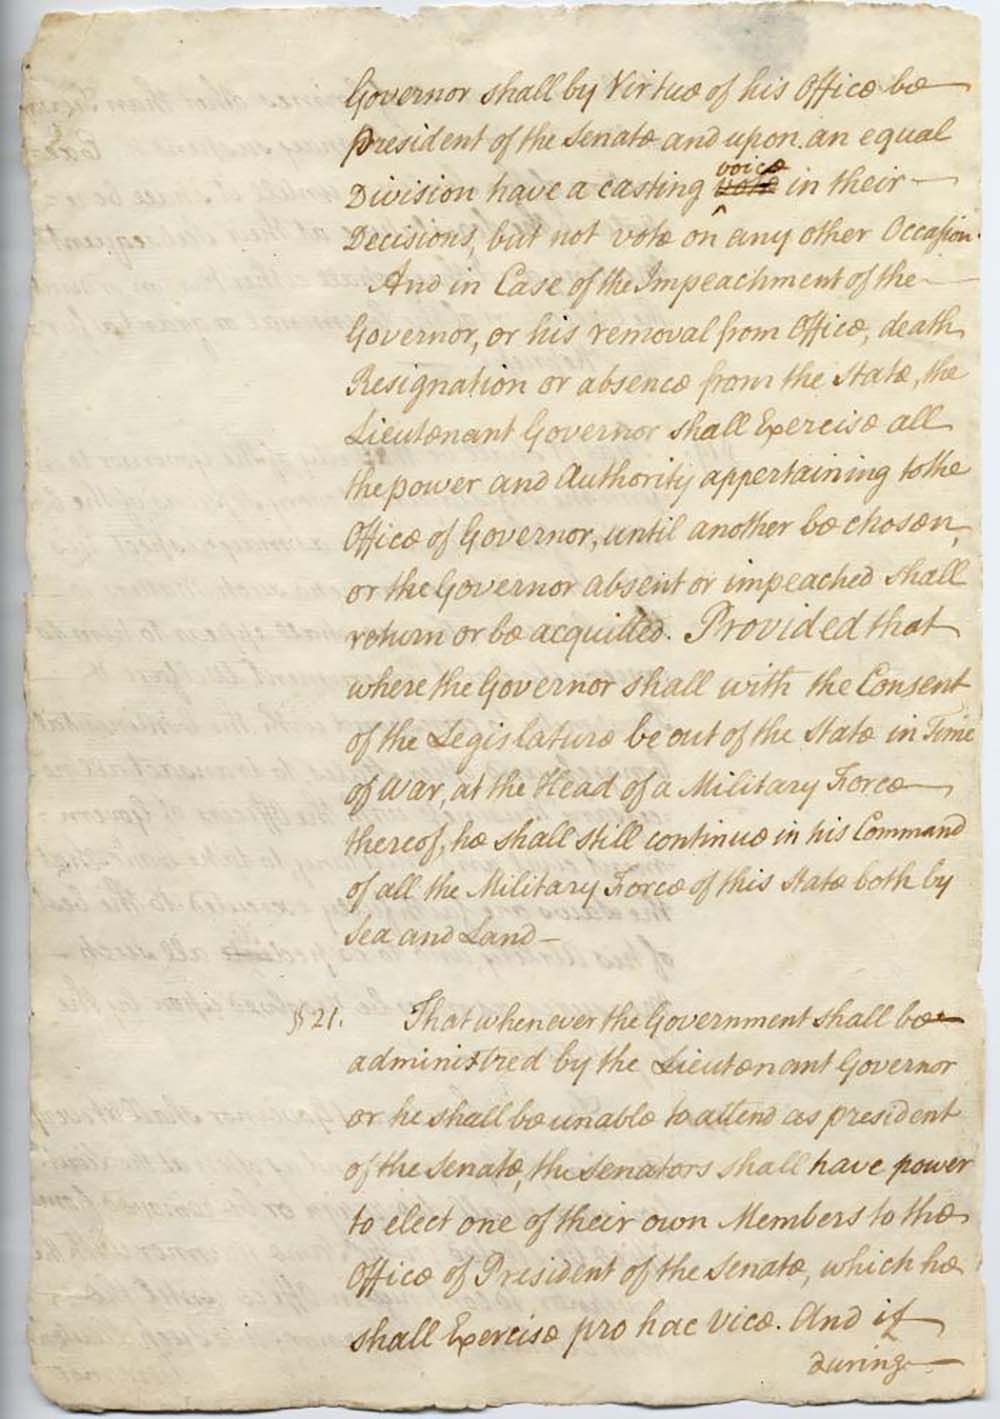 Governor shall by Virtue of his Office be
President of the Senate and upon an equal
voice
Division have a casting vote in their
^
Decisions, but not vote on any other Occasion.
And in Case of the Impeachment of the
Governor, or his removal from Office, death
Resignation or absence from the State, the
Lieutenant Governor shall Exercise all
the power and Authority appertaining to the
Office of Governor, until another be chosen,
or the Governor absent or impeached shall
return or be acquitted. Provided that
where the Governor shall with the Consent
of the Legislature be out of the State in Time
of War, at the Head of a Military Force
thereof, he shall still continue in his Command
of all the Military Force of this State both by
Sea and Land—
§ 21. That whenever the Government shall be
administred by the Lieutenant Governor
or he shall be unable to attend as president
of the Senate, the Senators shall have power
to elect one of their own Members to the
Office of President of the Senate, which he
shall Exercise pro hac vice. And if
during